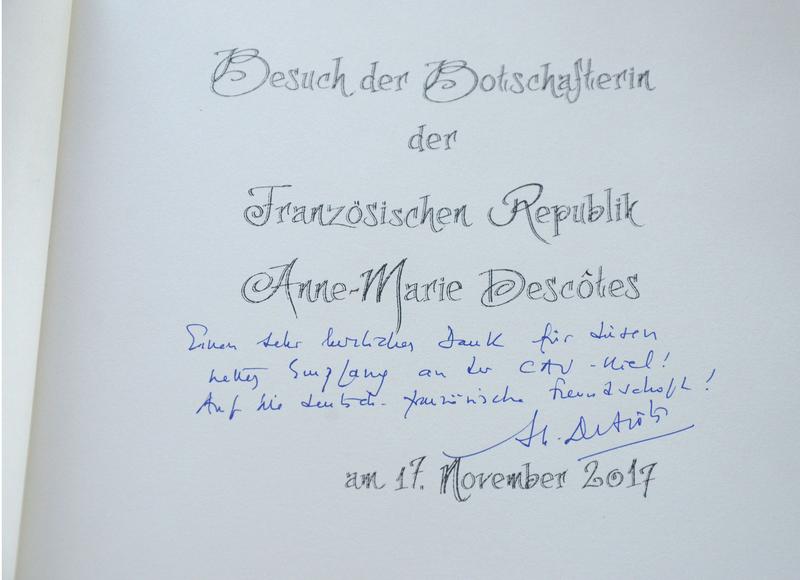 Besuch der Botschafterin
der
Französischen Republik
Anne-Marie Descôtes
Einen sehr herzlichen Dank für diesen
netten Empfang an der CAU-Kiel!
Auf die deutsch-französische Freundschaft!
am 17. November 2017